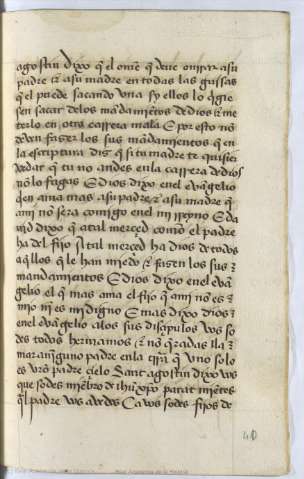 agostin dixo q̃ el ome q̃ deue onrrar a su
padre ⁊ a su madre en todas las guisas
q̃ el puede sacando vna sy ellos lo q̃sie
sen sacar delos mãdamiẽtos de dios ⁊ me
terlo en otra carrera mala E por esto no
deuen fazer los sus mãdamientos q̃ en
la escriptura diz q̃ si tu madre te quisiere
vedar q̃ tu no andes enla carrera de dios
no lo fagas E dios dixo enel euãgelio
q̃en ama mas a su padre ⁊ a su madre q̃
a mj no sera comigo enel mj rreyno E da
uid dixo q̃ atal merced como el padre
ha del fijo si tal merced ha dios de todos
aq̃llos q̃ le han miedo ⁊ fazen los sus
mandamientos E dios dixo enel euã
gelio el q̃ mas ama el fijo q̃ a mi no es
mio nj es mj digno E mas dixo dios
enel euãgelio alos sus disçipulos vos so
des todos hermanos ⁊ no q̃rades lla
mar a njnguno padre enla trr̃a q̃ vno solo
es vr̃o padre çielo Sant agostin dixo vos
que sodes miẽbro de ihũ xp̃o parat miẽtes
q̃l padre vos auedes Ca vos sodes fijos de
40